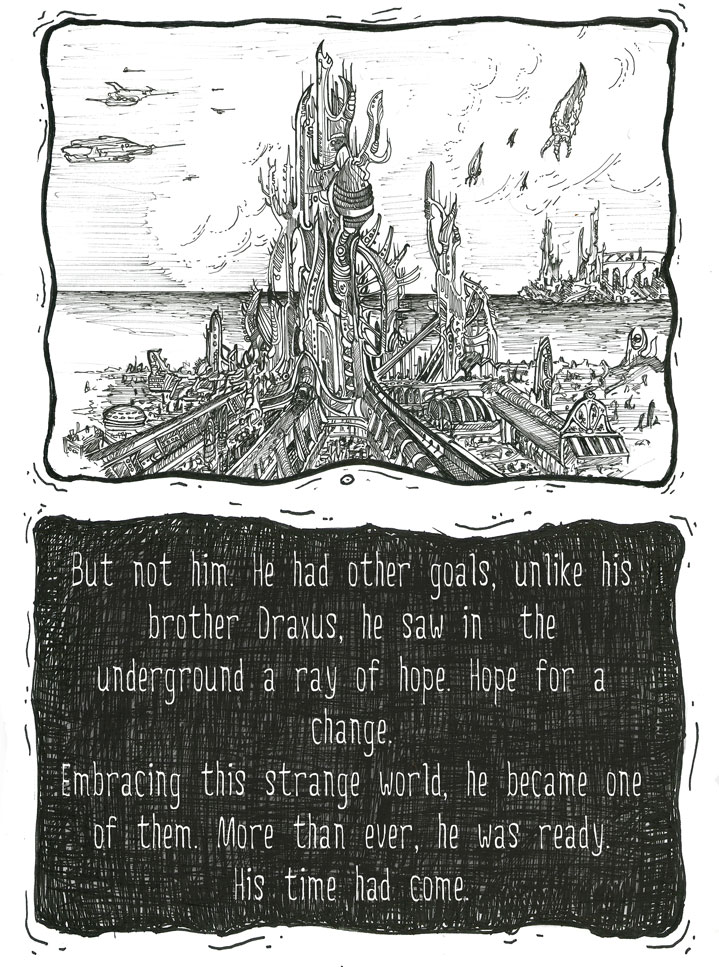 But not him. He had other goals, unlike his
brother Draxus, he saw in the
underground a ray of hope. Hope for a
change.
Embracing this strange world, he became one
of them. More than ever, he was ready.
His time had come.